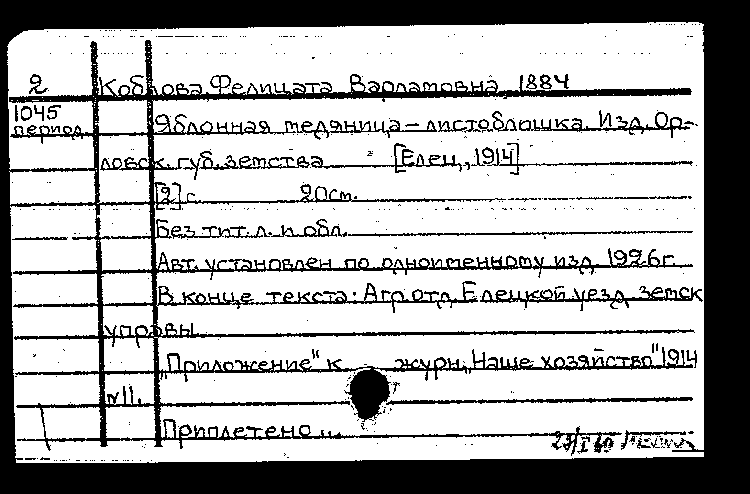 2 Коблова Фелицата Варламовна, 1884
1045
период.
Яблонная медяница – листоблошка. Изд. Ор-
ловск. губ. земства [Елец, 1914]
[2] с. 20 см.
Без тит. л. и обл.
Авт. установлен по одноименному изд. 1926 г.
В конце текста: Агр. отд. Елецкой уезд. земск
управы.
„Приложение" к журн. „Наше хозяйство" 1914
№ 11.
Приплетено...